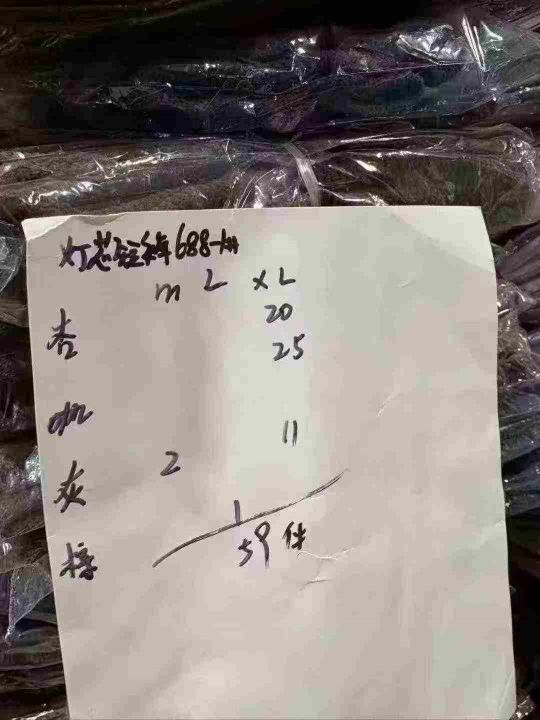 灯芯短裤688-
m L XL
20
杏 25
咖
2 11
灰
1
棕 59件